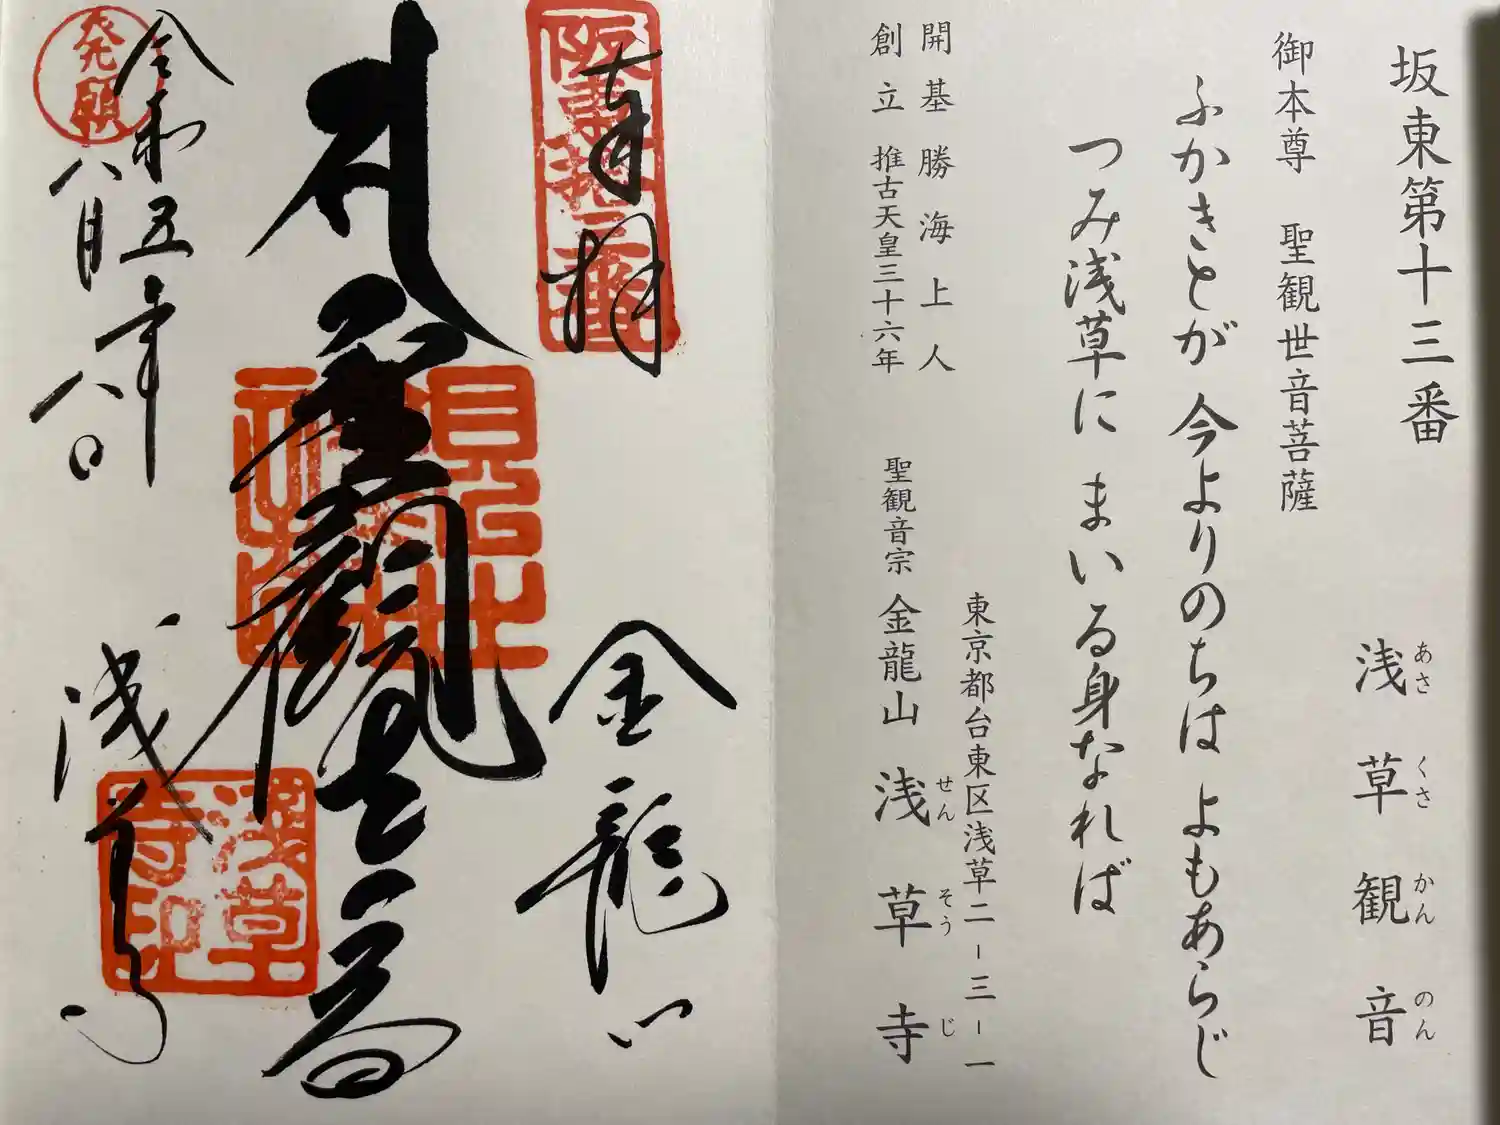 坂東第十三番 浅草観音
あさ くさ かん のん
御本尊 聖観世音菩薩
ふかきとが 今よりのちは よもあらじ
つみ浅草に まいる身なれば
東京都台東区浅草二-三-一
開基 勝海上人
創立 推古天皇三十六年
聖観音宗 金龍山 浅草寺
せん そう じ
奉拝
阪東拾三番
金龍山
聖観世音
浅草寺
浅草寺印
令和五年
八月八日
発願